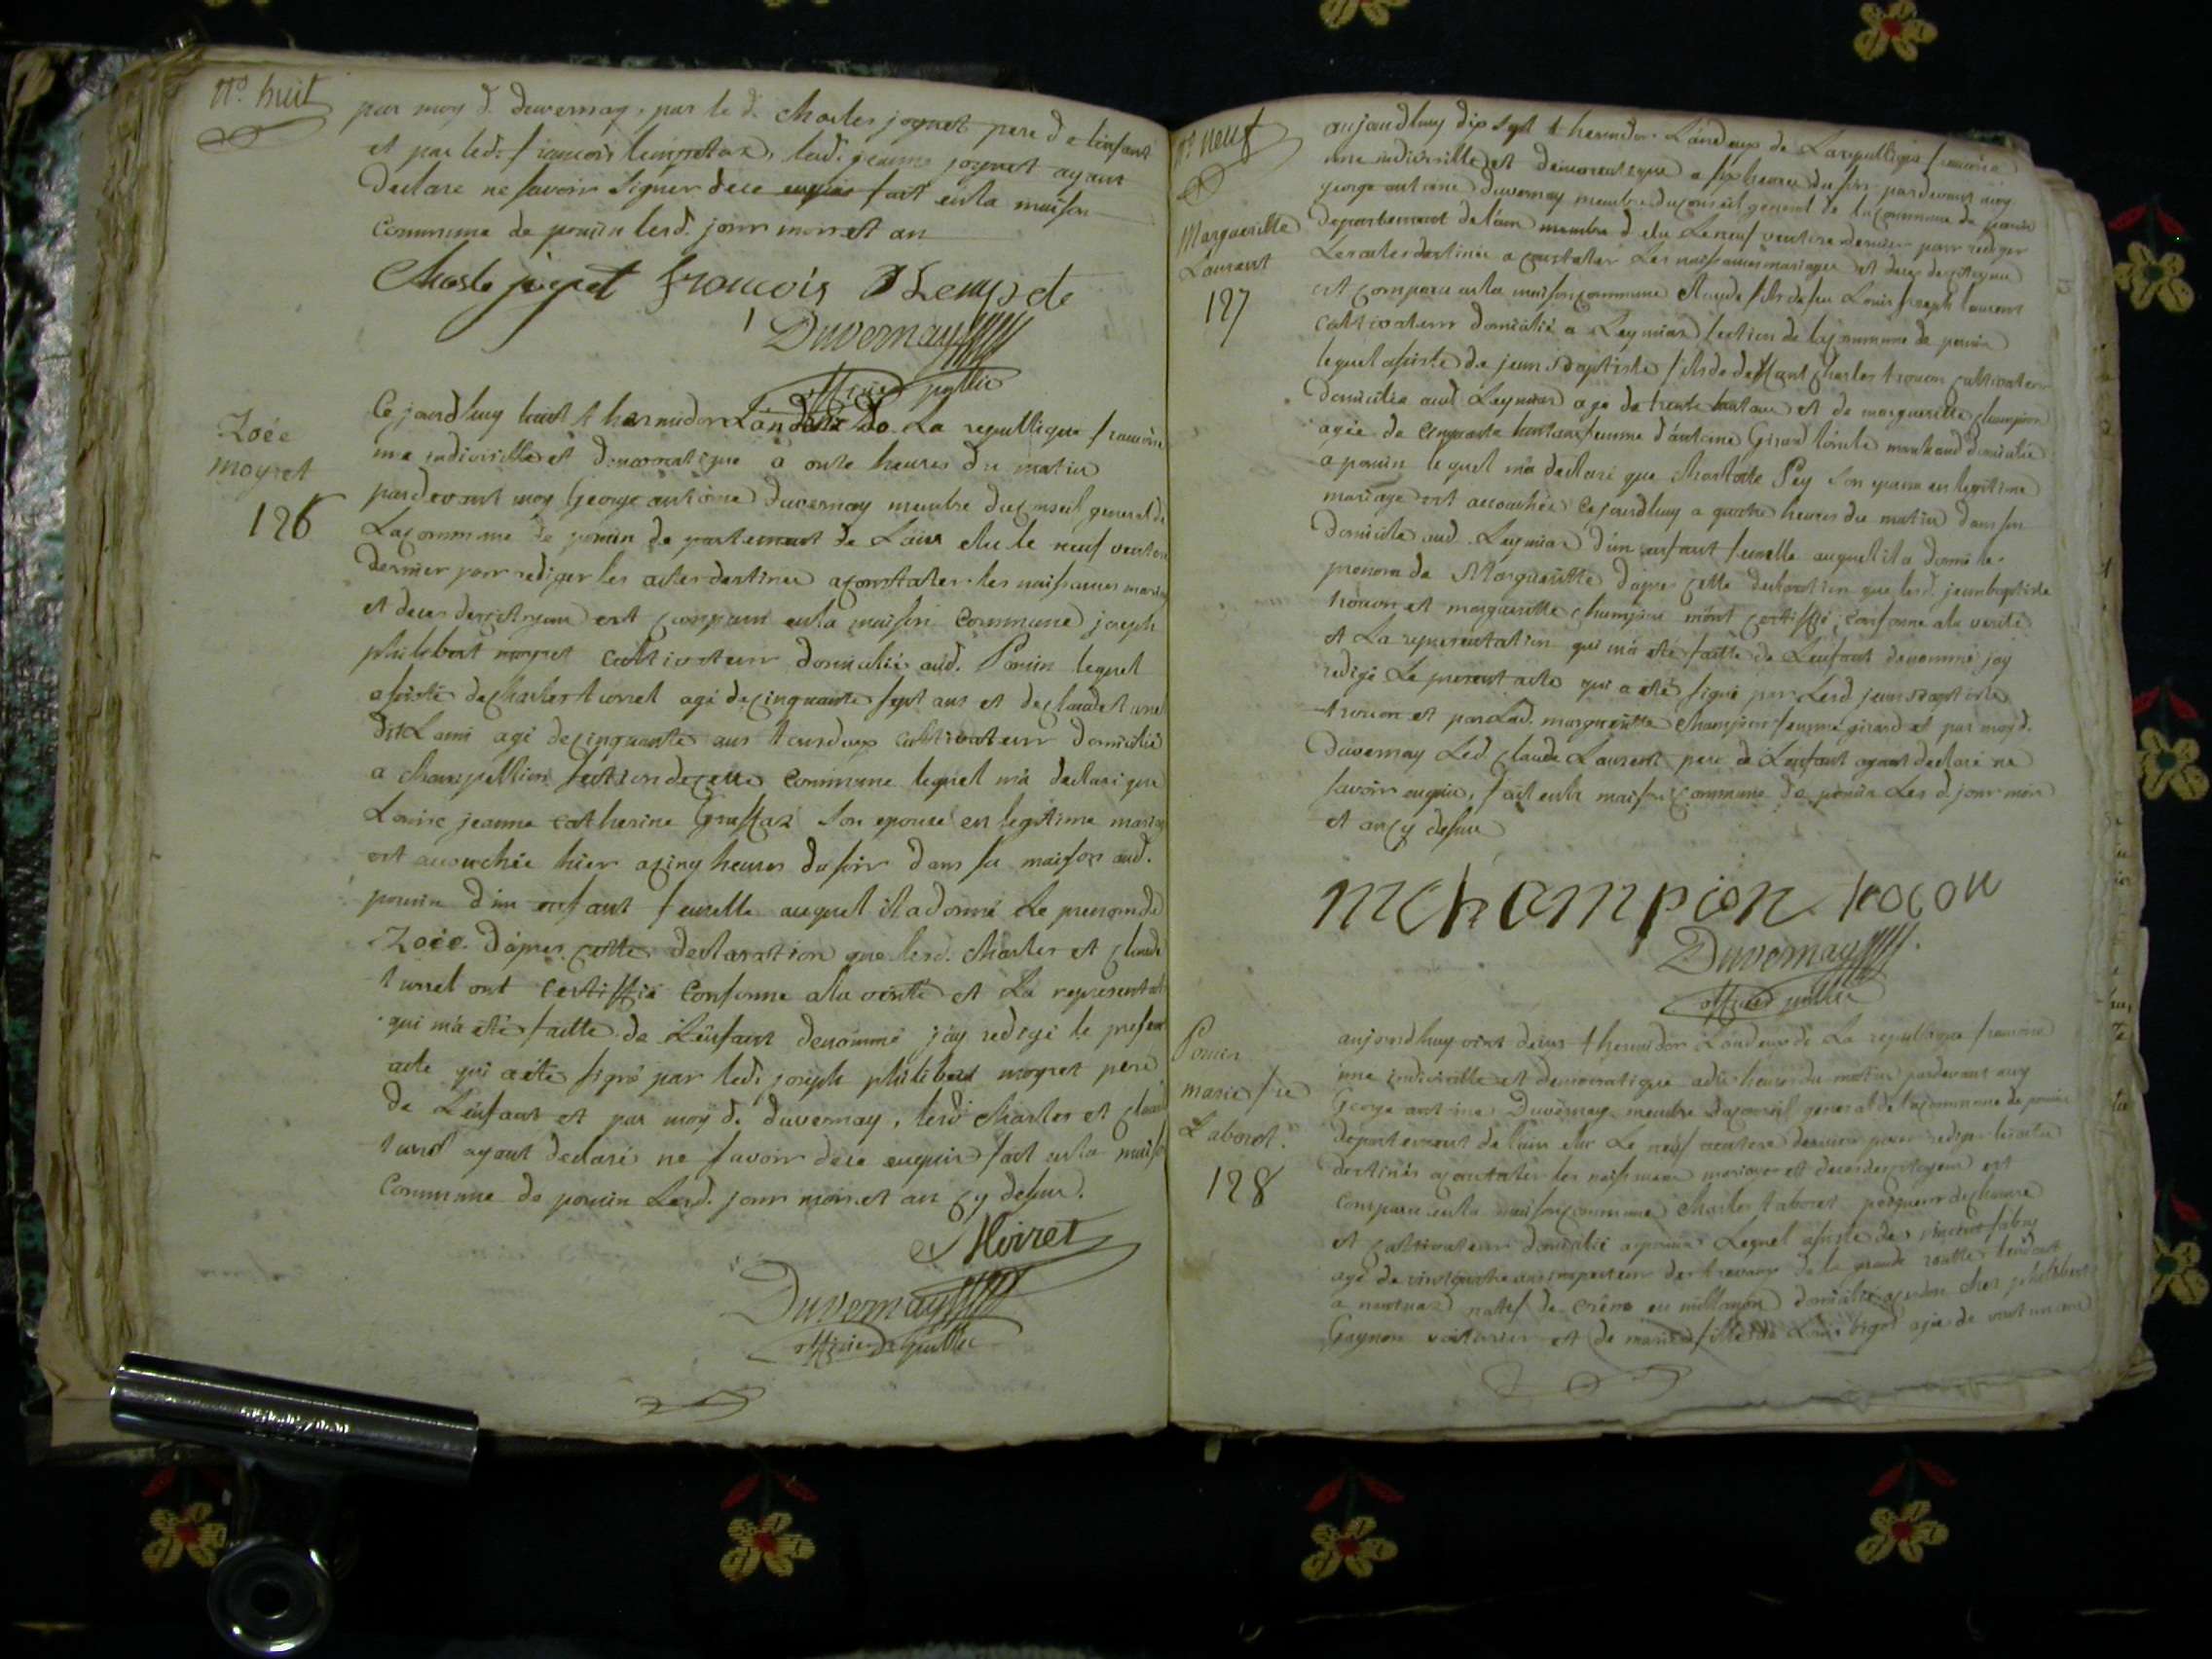 n.º huit
par moy d. duvernay, par le d. charles joyret pere de lenfant
et par led. francois tempetaz, led. jeanne joyret ayant
declaré ne savoir signer de ce enquis fait en la maison
commune de poncin lesd. jour mois et an
Charle joyret francois Tempete
Duvernay
officier public
Zoée
moyret
126
Cejourdhuy huit thermidor L'an deux de La republique francoise
une indivisible et democratique à onze heures du matin
pardevant moy George antoine duvernay membre du conseil general de
La commune de poncin departement de L'ain elu le neuf ventose
dernier pour rediger les actes destinés a constater les naissances mariages
et deces des citoyens est comparu en la maison commune joseph
philibert moyret cultivateur domicilié aud. Poncin lequel
assisté de charles turrel agé de cinquante sept ans et de claude turrel
dit Lami agé de cinquante ans tous deux cultivateur domicilié
a champeillon section de cette commune lequel m'a declaré que
Louise jeanne catherine son epouse en legitime mariage
est accouchée hier a cinq heures du soir dans sa maison aud.
poncin d'un enfant femelle auquel il a donné Le prenom de
Zoée. D'apres cette declaration que lesd. charles et claude
turrel ont certiffié conforme a la verité et La representation
qui m'a eté faitte de L'enfant denommé j'ay redigé le present
acte qui a eté signé par led. joseph philibert moyret pere
de L'enfant et par moy d. duvernay, lesd. charles et claude
turrel ayant declaré ne savoir de ce enquis fait en la maison
commune de poncin Lesd. jour mois et an cy dessus.
Moiret
Duvernay
officier public
n.º neuf
Margueritte
Laurent
127
aujourdhuy dix sept thermidor L'an deux de La republique francoise
une indivisible et democratique a six heures du soir pardevant moy
george antoine duvernay membre du conseil general de la commune de poncin
departement de l'ain membre d elu Le neuf ventose dernier pour rediger
Les actes destinés a constater Les naissances mariages et deces des citoyens
est comparu en la maison commune Claude fils de feu Louis joseph laurent
cultivateur domicilié a Leymiaz section de la commune de poncin
lequel assisté de jean Baptiste fils de deffunt charles trocon cultivateur
domicilié aud. Leymiaz agé de trente huit ans et de marguerite champion
agée de cinquante huit ans femme d'antoine Girard marchand domicilié
a poncin lequel m'a declaré que charlotte Pey son epouse en legitime
mariage est accouchée cejourdhuy a quatre heures du matin dans son
domicille aud. Leymiaz d'un enfant femelle auquel il a donné le
prenom de Marguerite d'apres cette declaration que lesd. jean baptiste
trocon et marguerite champion m'ont certiffié conforme a la verité
et La representation qui m'a eté faitte de Lenfant denommé jay
redigé Le present acte qui a eté signé par Lesd. jean Baptiste
trocon et par Lad. marguerite champion femme girard et par moy d.
Duvernay Led. claude Laurent pere de Lenfant ayant declaré ne
savoir enquis, fait en la maison commune de poncin Les d. jour mois
et an cy dessus
mchampion trocon
Duvernay
officier public
Poncin
marie
Laboret.
128
aujourdhuy vint deux thermidor L'an deux de La republique francoise
une indivisible et democratique a dix heures du matin pardevant moy
George antoine Duvernay membre du conseil general de la commune de poncin
departement de l'ain elu Le neuf ventose dernier pour rediger les actes
destinés a constater les naissances mariages et deces des citoyens est
comparu en la maison commune Charles taboret
et cultivateur domicilié a poncin Lequel assisté de vincent
agé de vint quatre ans inspecteur des travaux de la grande routte tendant
a nantuaz natif de domicilié a poncin chez philibert
Gagnon voiturier et de marie fille de Louis bigot agée de vint un ans